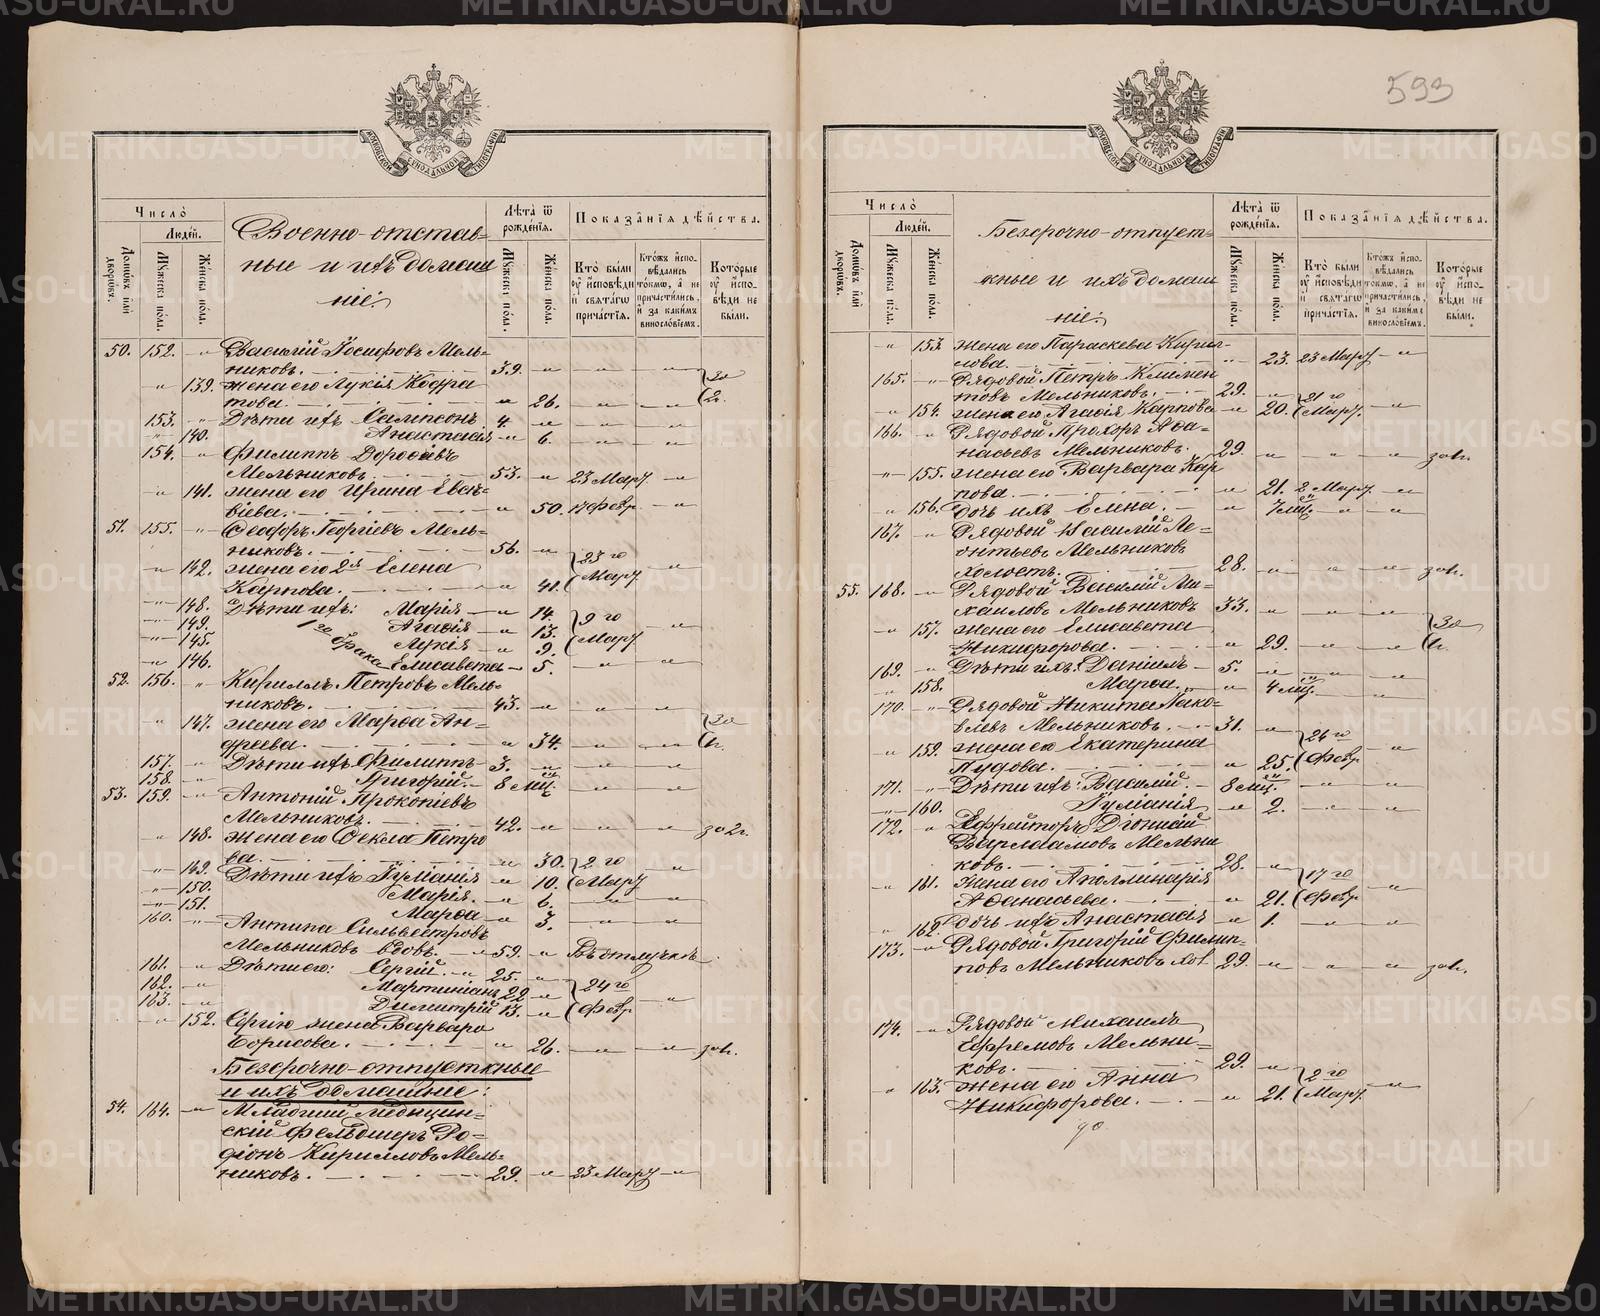 METRIKI.GASO-URAL.RU
593
Число̀
Людей.
Домовъ или дворовъ.
Мꙋжеска пола.
Женска пола.
Военно-отстав-
ные и ихъ домаш
ніе:
Лѣта ѿ рожденїѧ.
Мꙋжеска пола.
Женска пола.
Показанїѧ дѣйства.
Кто̀ были оу исповѣди и свѧтагѡ причастїѧ.
Ктожъ испо-вѣдались токмѡ, а не причастились, и за какимъ винословїемъ.
Которые оу испо-вѣди не были.
50. 152. -"- Василій Іосифовъ Мель-
никовъ. 39. -"- -"- -"-
" 139. жена его Лукія Кодра
това. " 26. -"- -"- за 2г.
153. -"- Дѣти ихъ Сампсонъ 4. -"- -"- -"-
-"- 140. Анастасія -"- 6. -"- -"-
154. -"- Филиппъ Дорофѣевъ
Мельниковъ. 53. -"- 23 Мар. -"-
-"- 141. жена его Ирина Евсѣ-
віева. " 50. 17 Февр. -"-
51. 155. -"- Ѳеодоръ Георгіевъ Мель-
никовъ. 56. -"-
-"- 142. жена его 2я Елена
Карпова. -"- 41. 23го Мар. -"-
-"- 148. Дѣти ихъ: Марія -"- 14.
-"- 149. 1го брака Агафія -"- 13. 9го Мар. -"-
-"- 145. Лукія -"- 9.
-"- 146. Елисавета -"- 5. -"- -"-
52. 156. -"- Кириллъ Петровъ Мель-
никовъ. 43. -"- -"- -"-
-"- 147. жена его Марѳа Ан-
дреева. -"- 34. -"- -"-
157. -"- Дѣти ихъ Филиппъ 3. -"- -"- -"-
158. -"- Григорій. 8 мц. -"- -"-
53. 159. -"- Антоній Прокопіевъ
Мельниковъ. 42. -"- -"- -"- за 2г.
" 148. жена его Ѳекла Петро
ва. " 30. 2го Мар. -"-
-"- 149. Дѣти ихъ Іуліанія -"- 10.
-"- 150. Марія. -"- 6. -"- -"-
-"- 151. Марѳа -"- 3. -"- -"-
160. -"- Антипа Сильвестровъ
Мельниковъ вдовъ. 59. -"- Въ отлучкѣ.
161. -"- Дѣти его: Сергій. 25. -"-
162. -"- Мартиніанъ 22 -"- 24го Февр. -"-
163. -"- Димитрій 13. -"-
-"- 152. Сергію жена Варвара
Борисова. " 26. -"- -"-
Безсрочно-отпускные
и ихъ домашніе:
54. 164. -"- Младшій медицин-
скій фельдшеръ Ро-
діонъ Кирилловъ Мель-
никовъ. 29. -"- 23 Мар. -"-
Число̀
Людей.
Домовъ или дворовъ.
Мꙋжеска пола.
Женска пола.
Безсрочно-отпуст-
кные и ихъ домаш
ніе:
Лѣта ѿ рожденїѧ.
Мꙋжеска пола.
Женска пола.
Показанїѧ дѣйства.
Кто̀ были оу исповѣди и свѧтагѡ причастїѧ.
Ктожъ испо-вѣдались токмѡ, а не причастились, и за какимъ винословїемъ.
Которые оу испо-вѣди не были.
-"- 153. жена его Параскева Кирил-
лова. -"- 23. 23 Мар. -"-
165. -"- Рядовой Петръ Климен
товъ Мельниковъ. 29. -"- 21го Мар. -"-
-"- 154. жена его Агафія Карпова -"- 20.
166. -"- Рядовой Прохоръ Аѳа-
насьевъ Мельниковъ. 29. -"- -"- -"-
-"- 155. жена его Варвара Кар
пова. -"- 21. 2 Мар. -"-
" 156. Дочь ихъ Елена. -"- 7 мц. -"- -"-
167. -"- Рядовой Василій Ле-
онтьевъ Мельниковъ
холостъ. 28. -"- -"- -"-
55. 168. -"- Рядовой Василій Ми-
хаиловъ Мельниковъ 33. -"- -"- -"-
-"- 157. жена его Елисавета
Никифорова. -"- 29. -"- -"-
169. -"- Дѣти ихъ: Даніилъ 5. -"- -"- -"-
-"- 158. Марѳа. -"- 4 мц. -"- -"-
170. -"- Рядовой Никита Яко-
влевъ Мельниковъ. 31. -"-
-"- 159. жена его Екатерина
Пудова. -"- 25. 24го Февр. -"-
171. -"- Дѣти ихъ: Василій. 8 мц. -"- -"-
-"- 160. Іуліанія -"- 2. -"- -"-
172. -"- Ефрейторъ Діонисій
Варлаамовъ Мельни
ковъ. 28. -"-
-"- 161. жена его Аполлинарія
Аѳанасьева. -"- 21. 17го Февр. -"-
" 162. дочь ихъ Анастасія -"- 1. -"- -"-
173. -"- Рядовой Григорій Филип-
повъ Мельниковъ хол. 29. -"- -"- -"-
174. -"- Рядовой Михаилъ
Ефремовъ Мельни-
ковъ. 29. -"-
" 163. жена его Анна
Никифорова. -"- 21. 2го Мар. -"-